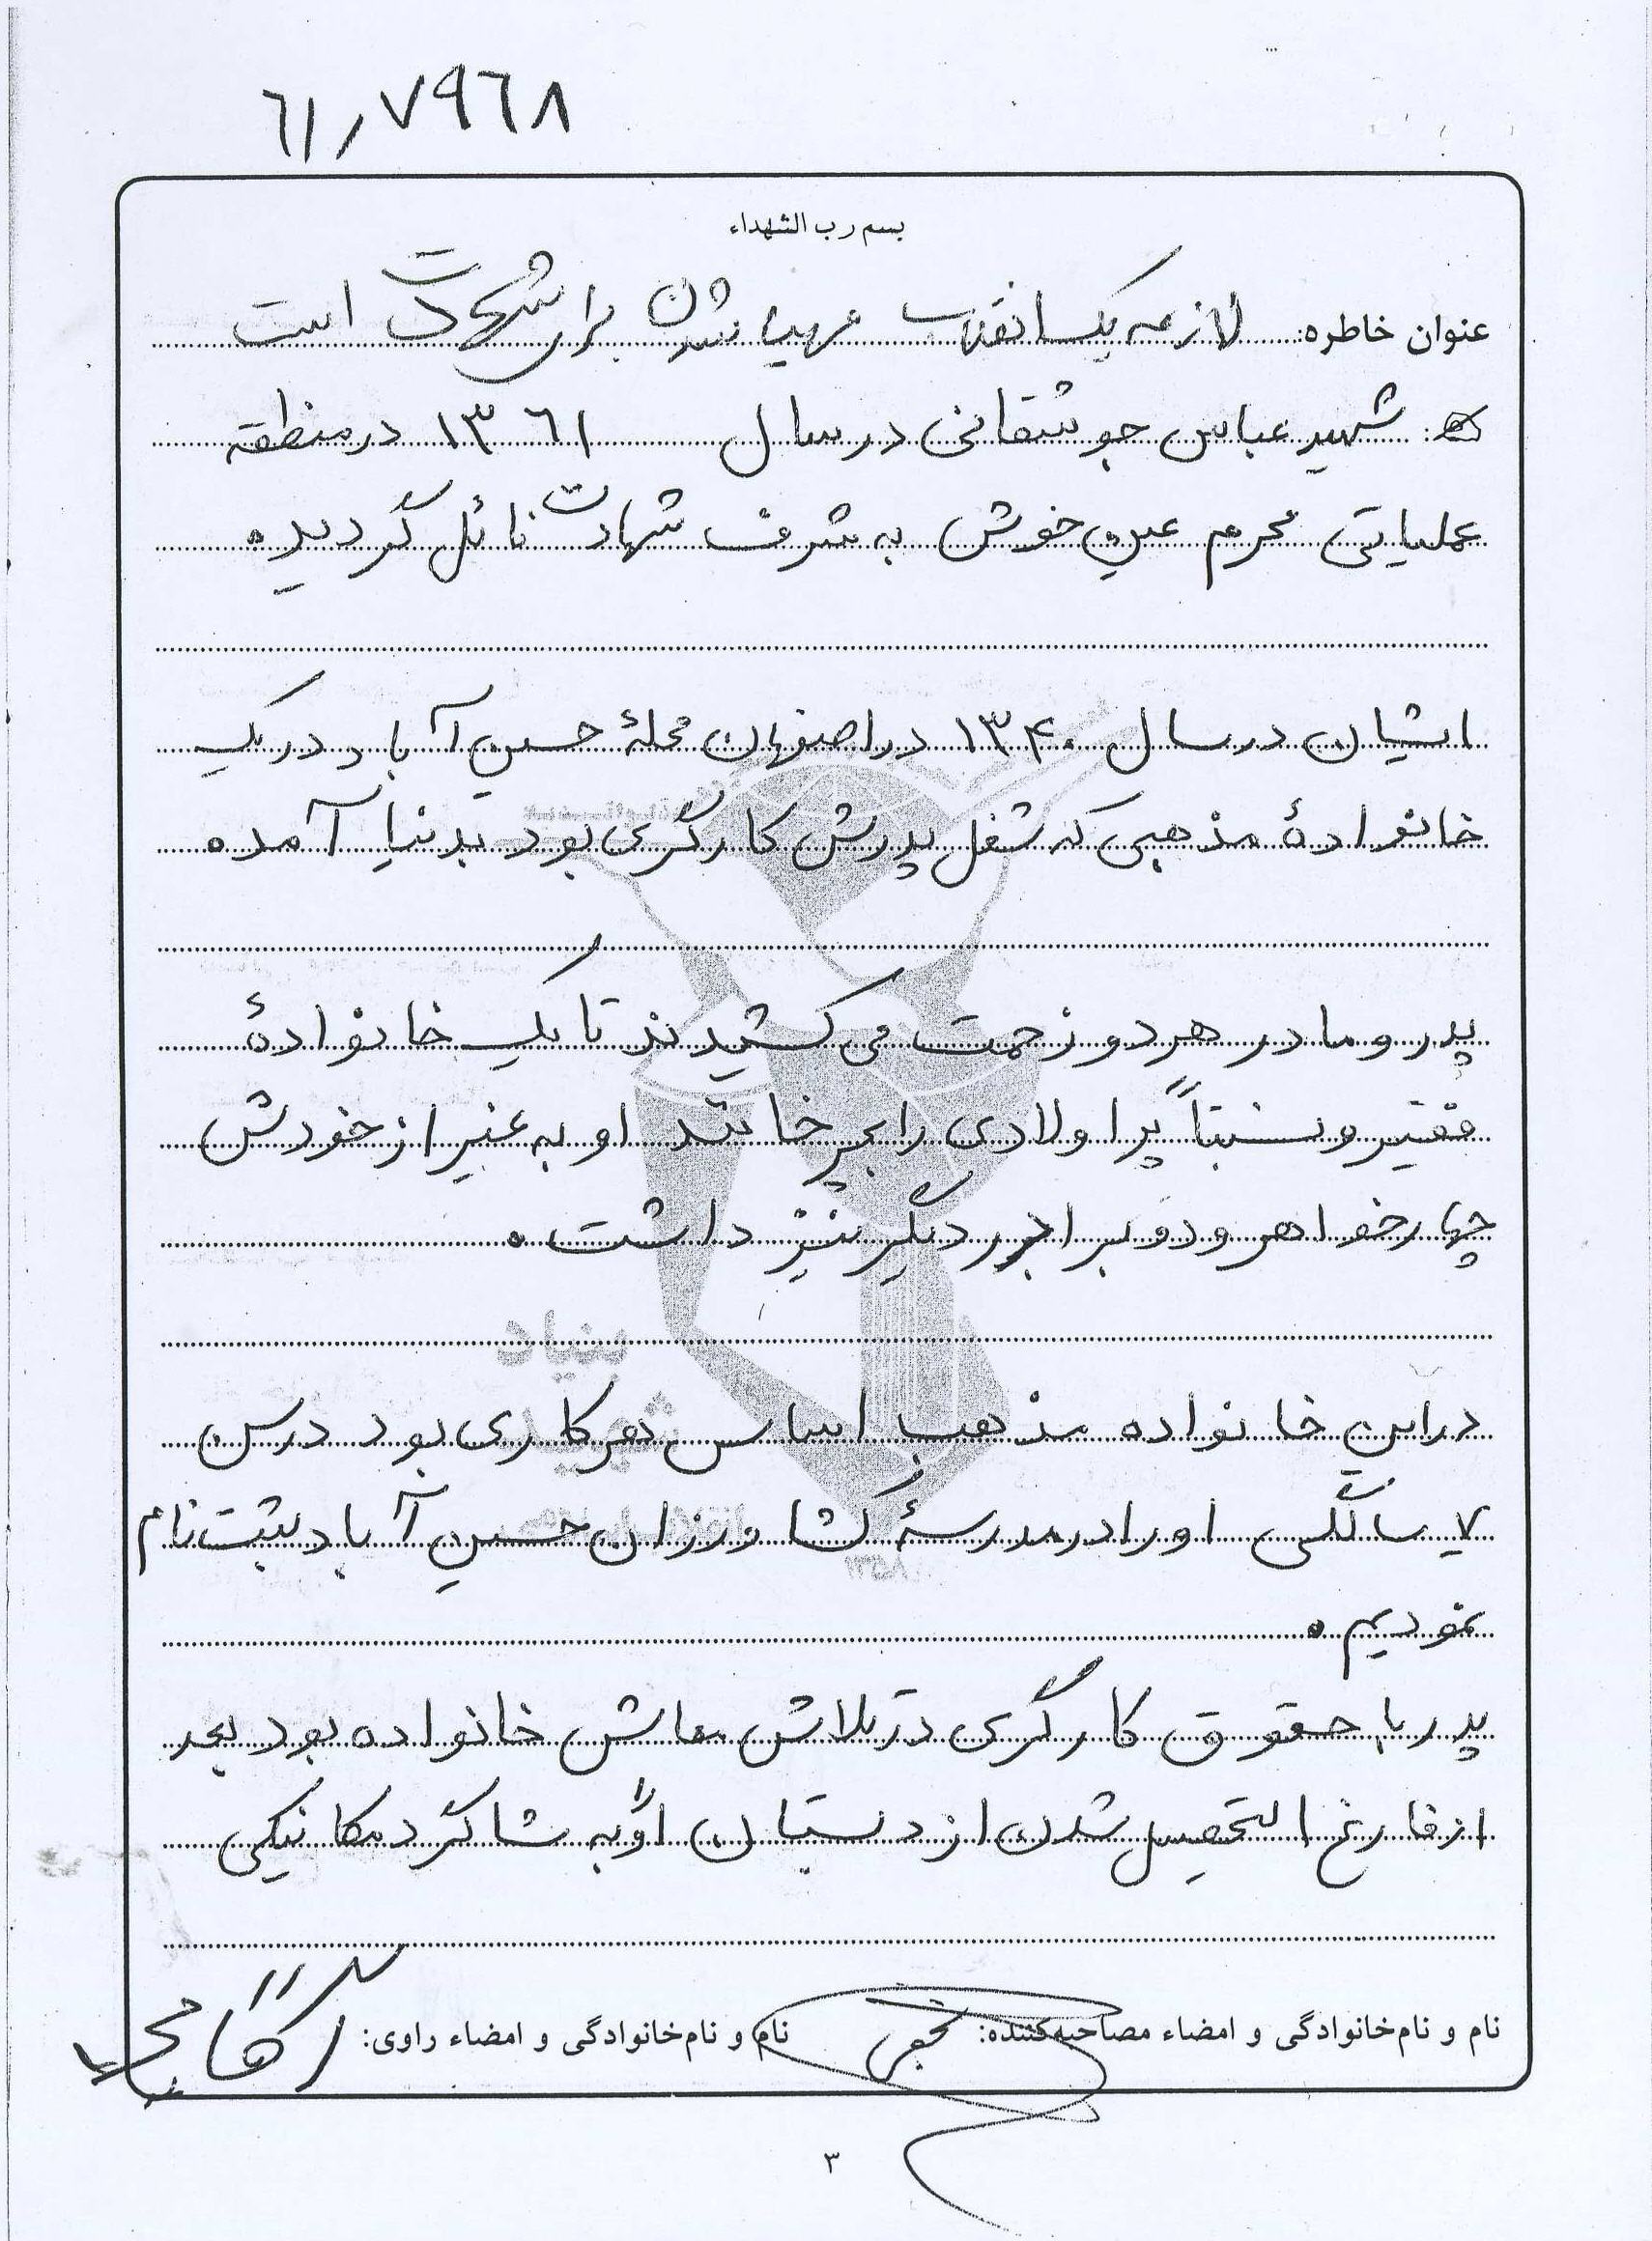 ٦١٫٧٩٦٨
بسم رب الشهداء
عنوان خاطره: لازمه یک انقلاب مهیا شدن برای شهادت است
شهید عباس جوشقانی در سال ١٣٦١ در منطقه
عملیاتی محرم عین خوش به شرف شهادت نائل گردیده
ایشان در سال ۱۳۴۰ در اصفهان محلهٔ حسین آباد در یک
خانوادهٔ مذهبی که شغل پدرش کارگری بود بدنیا آمده
پدر و مادر هر دو زحمت می کشیدند تا یک خانوادهٔ
فقیر و نسبتاً پر اولادی را بچرخانند او به غیر از خودش
چهار خواهر و دو برادر دیگر نیز داشت.
در این خانواده مذهب اساس هر کاری بود در سن
۷ سالگی او را در مدرسهٔ کشاورزان حسین آباد ثبت نام
نمودیم.
پدر با حقوق کارگری در تلاش معاش خانواده بود بعد
از فارغ التحصیل شدن از دبستان او را به شاگرد مکانیکی
نام و نام خانوادگی و امضاء مصاحبه‌کننده: نام و نام خانوادگی و امضاء راوی:
۳
بنیاد
شهید